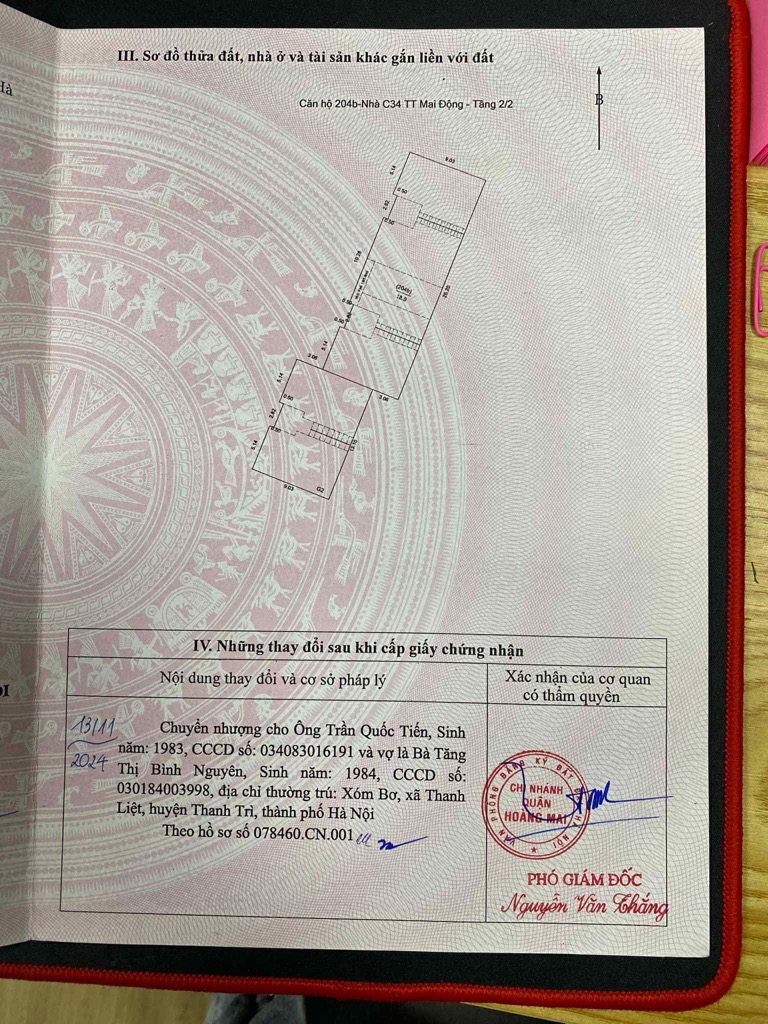 III. Sơ đồ thửa đất, nhà ở và tài sản khác gắn liền với đất
Hà
Căn hộ 204b-Nhà C34 TT Mai Động - Tầng 2/2
B
9.03
5.14
0.50
2.82
0.50
10.28
(204b)
18.9
0.50
0.50
5.14
3.06
3.06
5.14
0.50
2.82
0.50
13.10
5.14
9.03
G2
IV. Những thay đổi sau khi cấp giấy chứng nhận
Nội dung thay đổi và cơ sở pháp lý
Xác nhận của cơ quan
có thẩm quyền
13/11
2024
Chuyển nhượng cho Ông Trần Quốc Tiến, Sinh
năm: 1983, CCCD số: 034083016191 và vợ là Bà Tăng
Thị Bình Nguyên, Sinh năm: 1984, CCCD số:
030184003998, địa chỉ thường trú: Xóm Bơ, xã Thanh
Liệt, huyện Thanh Trì, thành phố Hà Nội
Theo hồ sơ số 078460.CN.001
VĂN PHÒNG ĐĂNG KÝ ĐẤT ĐAI HÀ NỘI
CHI NHÁNH
QUẬN
HOÀNG MAI
PHÓ GIÁM ĐỐC
Nguyễn Văn Thắng